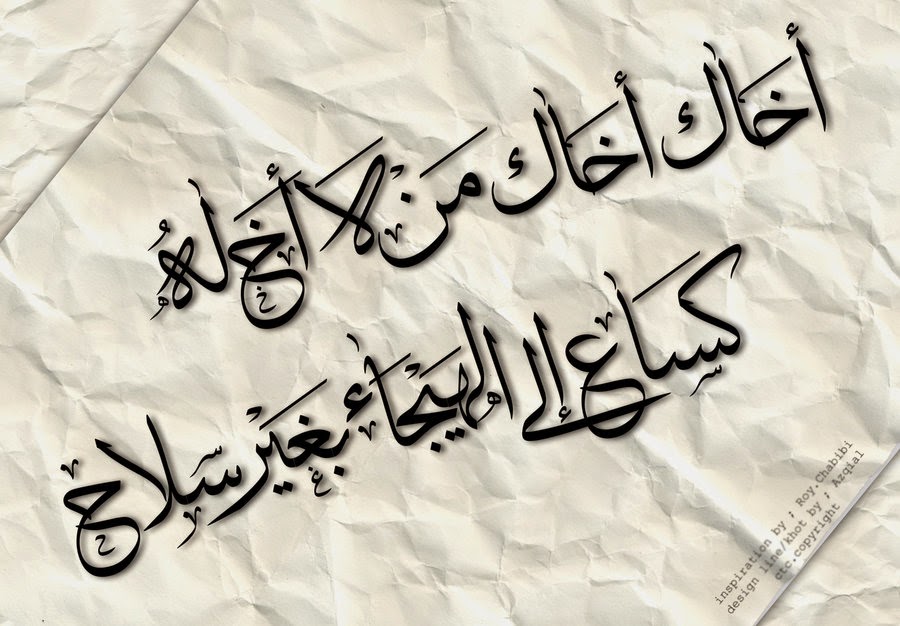 أخاك أخاك من لا أخ له
كساع إلى الهيجاء بغير سلاح
inspiration by ; Roy.Chabibi
design line/khot by ; Azqial
ctc.copyright